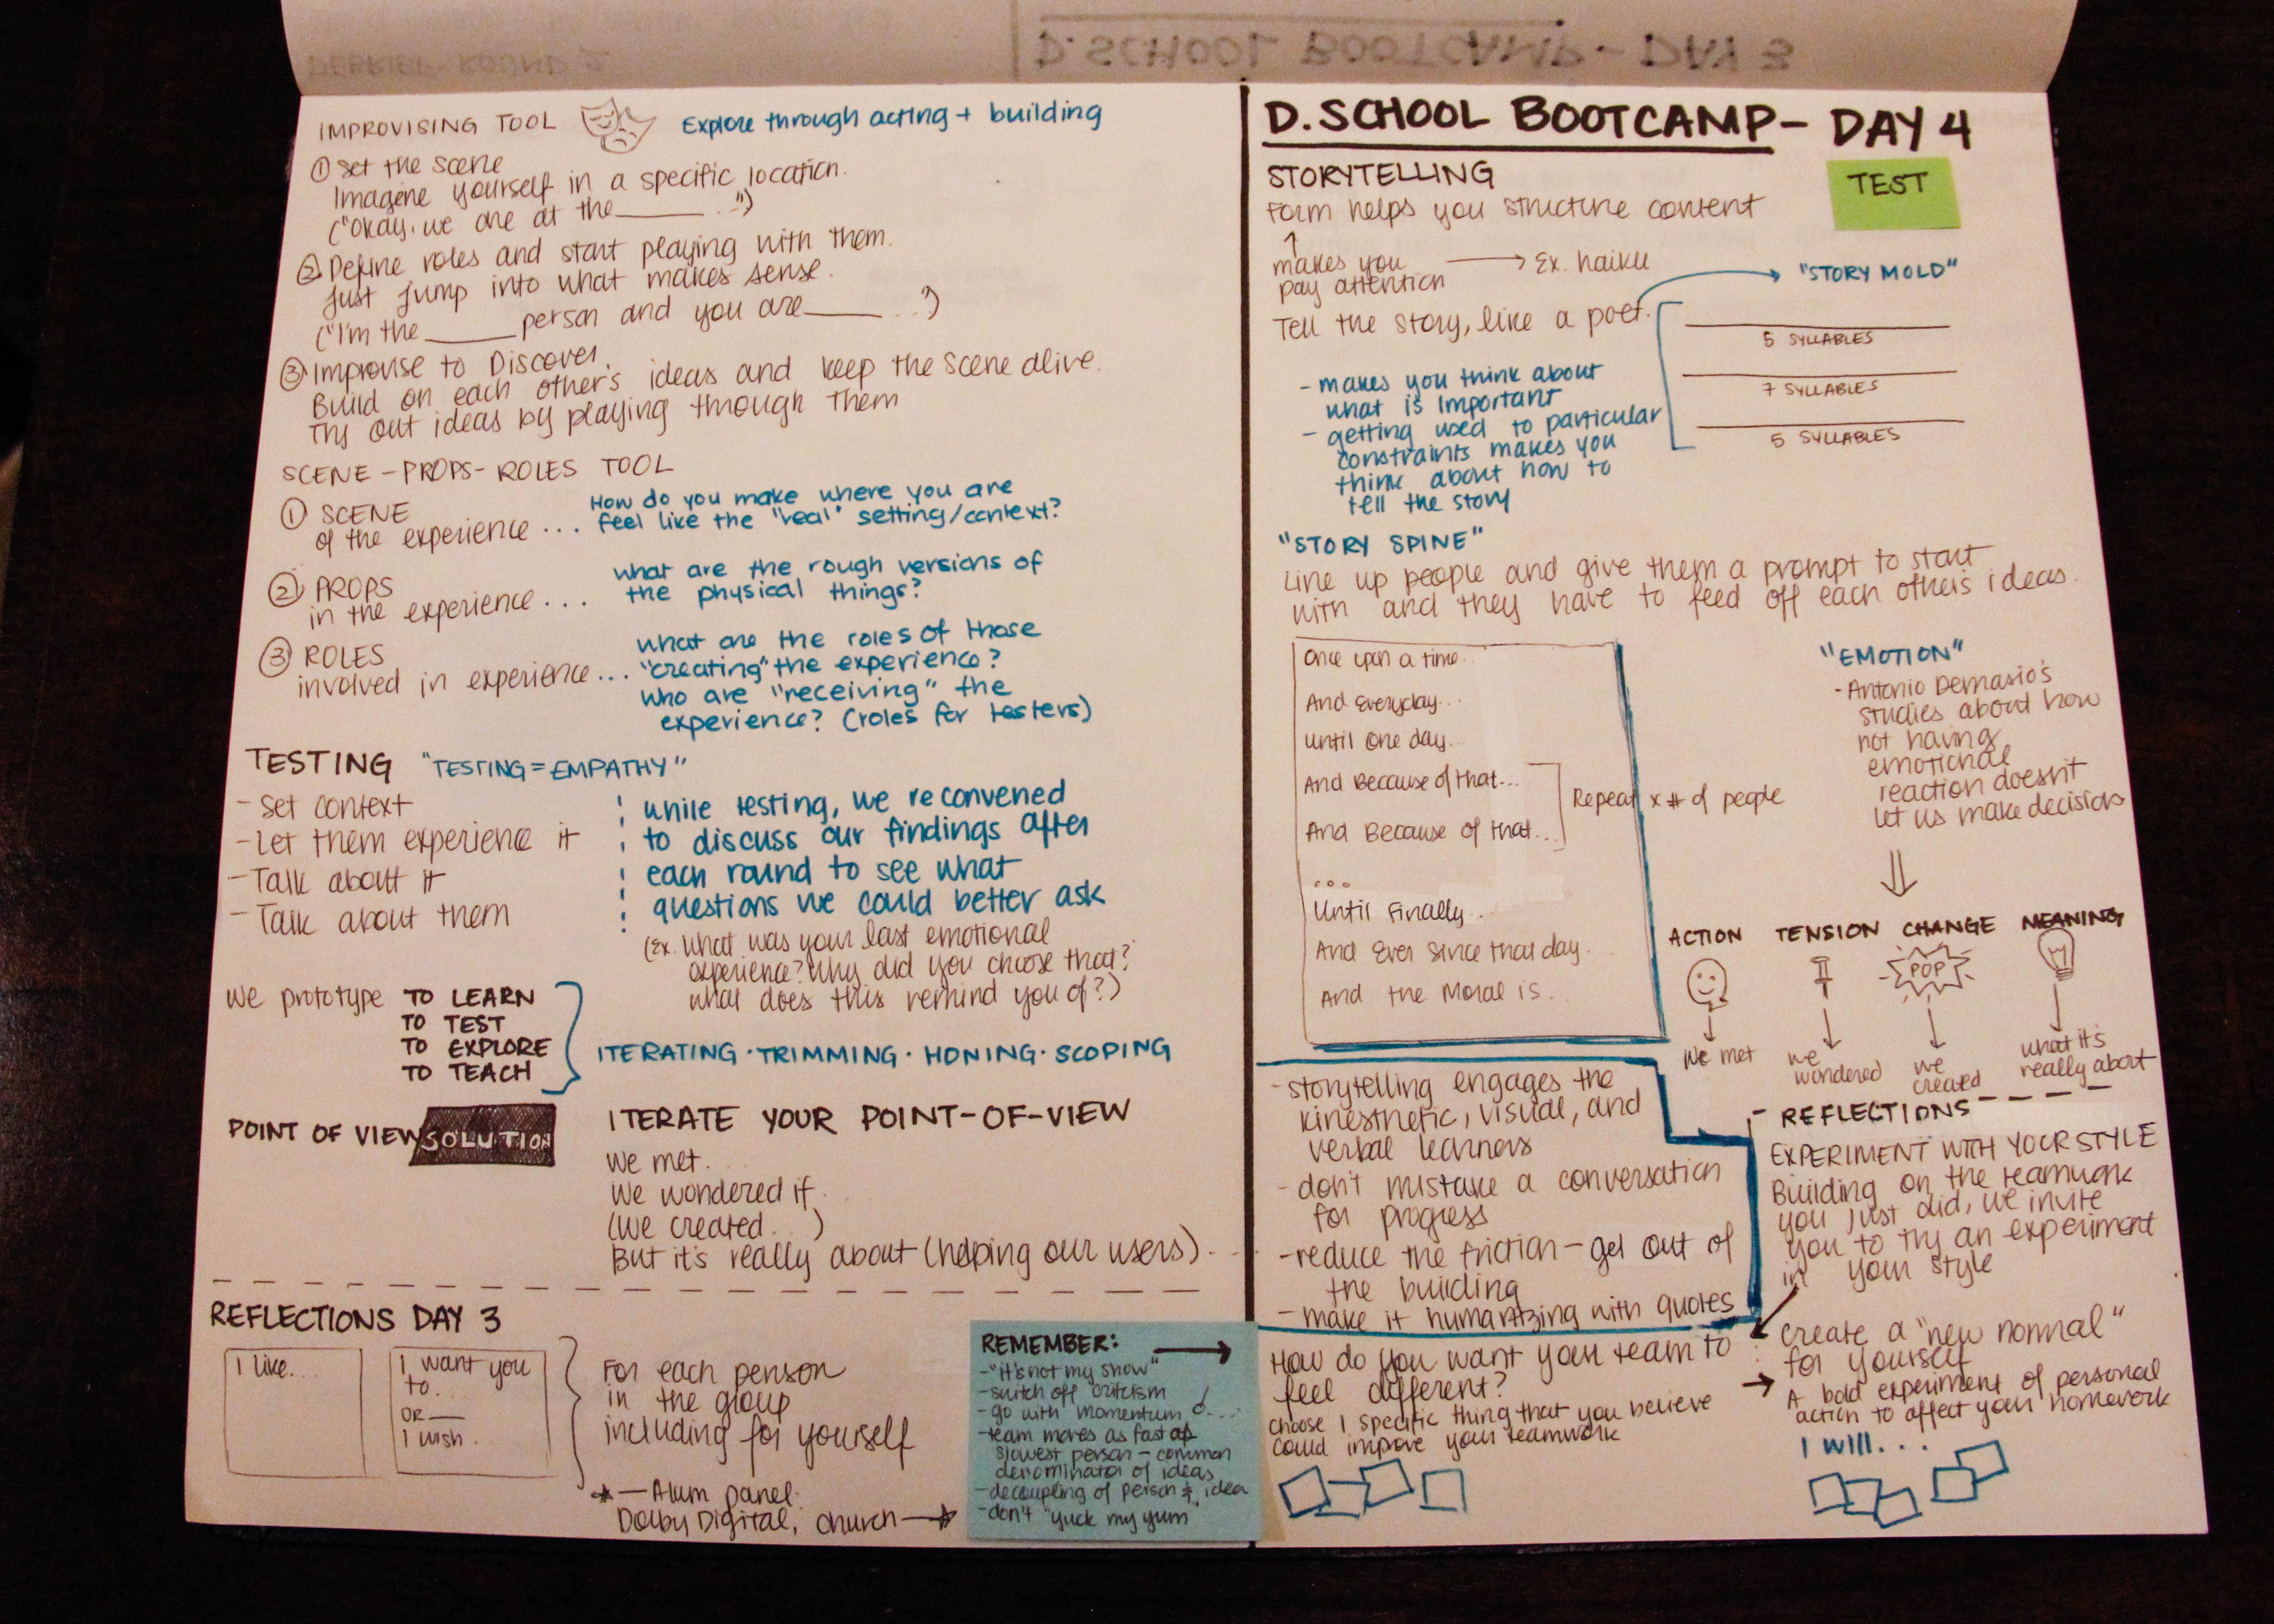 IMPROVISING TOOL
Explore through acting + building
① Set the scene
Imagine yourself in a specific location.
("Okay, we are at the ______ ...")
② Define roles and start playing with them.
Just jump into what makes sense.
("I'm the ______ person and you are ______ ...")
③ Improvise to Discover.
Build on each other's ideas and keep the scene alive.
Try out ideas by playing through them
SCENE - PROPS - ROLES TOOL
① SCENE
of the experience ...
How do you make where you are
feel like the "real" setting/context?
② PROPS
in the experience ...
what are the rough versions of
the physical things?
③ ROLES
involved in experience ...
what are the roles of those
"creating" the experience?
who are "receiving" the
experience? (roles for testers)
TESTING "TESTING = EMPATHY"
- Set context
- Let them experience it
- Talk about it
- Talk about them
while testing, we reconvened
to discuss our findings after
each round to see what
questions we could better ask
(Ex. What was your last emotional
experience? Why did you choose that?
what does this remind you of?)
We prototype TO LEARN
TO TEST
TO EXPLORE
TO TEACH
ITERATING · TRIMMING · HONING · SCOPING
POINT OF VIEW SOLUTION
ITERATE YOUR POINT-OF-VIEW
We met...
We wondered if...
(We created...)
But it's really about (helping our users)...
REFLECTIONS DAY 3
I like...
I want you
to...
OR __
I wish.
For each person
in the group
including for yourself
★ — Alum panel:
Dolby Digital, church
REMEMBER:
- "it's not my show"
- switch off criticism
- go with momentum
- team moves as fast as
slowest person - common
denominator of ideas
- decoupling of person & idea
- don't "yuck my yum"
D. SCHOOL BOOTCAMP - DAY 4
TEST
STORYTELLING
Form helps you structure content
makes you
pay attention
Ex. haiku
"STORY MOLD"
Tell the story, like a poet.
5 SYLLABLES
7 SYLLABLES
5 SYLLABLES
- makes you think about
what is important
- getting used to particular
constraints makes you
think about how to
tell the story
"STORY SPINE"
Line up people and give them a prompt to start
with and they have to feed off each other's ideas.
Once upon a time...
And Everyday...
Until One day...
And Because of that...
And Because of that...
...
Until Finally...
And Ever Since that day...
And the Moral is...
Repeat x # of people
"EMOTION"
- Antonio Demasio's
studies about how
not having
emotional
reaction doesn't
let us make decisions
ACTION TENSION CHANGE MEANING
POP
We met
we
wondered
we
created
what it's
really about
- storytelling engages the
kinesthetic, visual, and
verbal learners
- don't mistake a conversation
for progress
- reduce the friction - get out of
the building
- make it humanizing with quotes
REFLECTIONS
EXPERIMENT WITH YOUR STYLE
Building on the teamwork
you just did, we invite
you to try an experiment
in your style
How do you want your team to
feel different?
Choose 1 specific thing that you believe
could improve your teamwork
create a "new normal"
for yourself
A bold experiment of personal
action to affect your homework
I will...
D. SCHOOL BOOTCAMP - DAY 3
DEBRIEF - ROUND 2